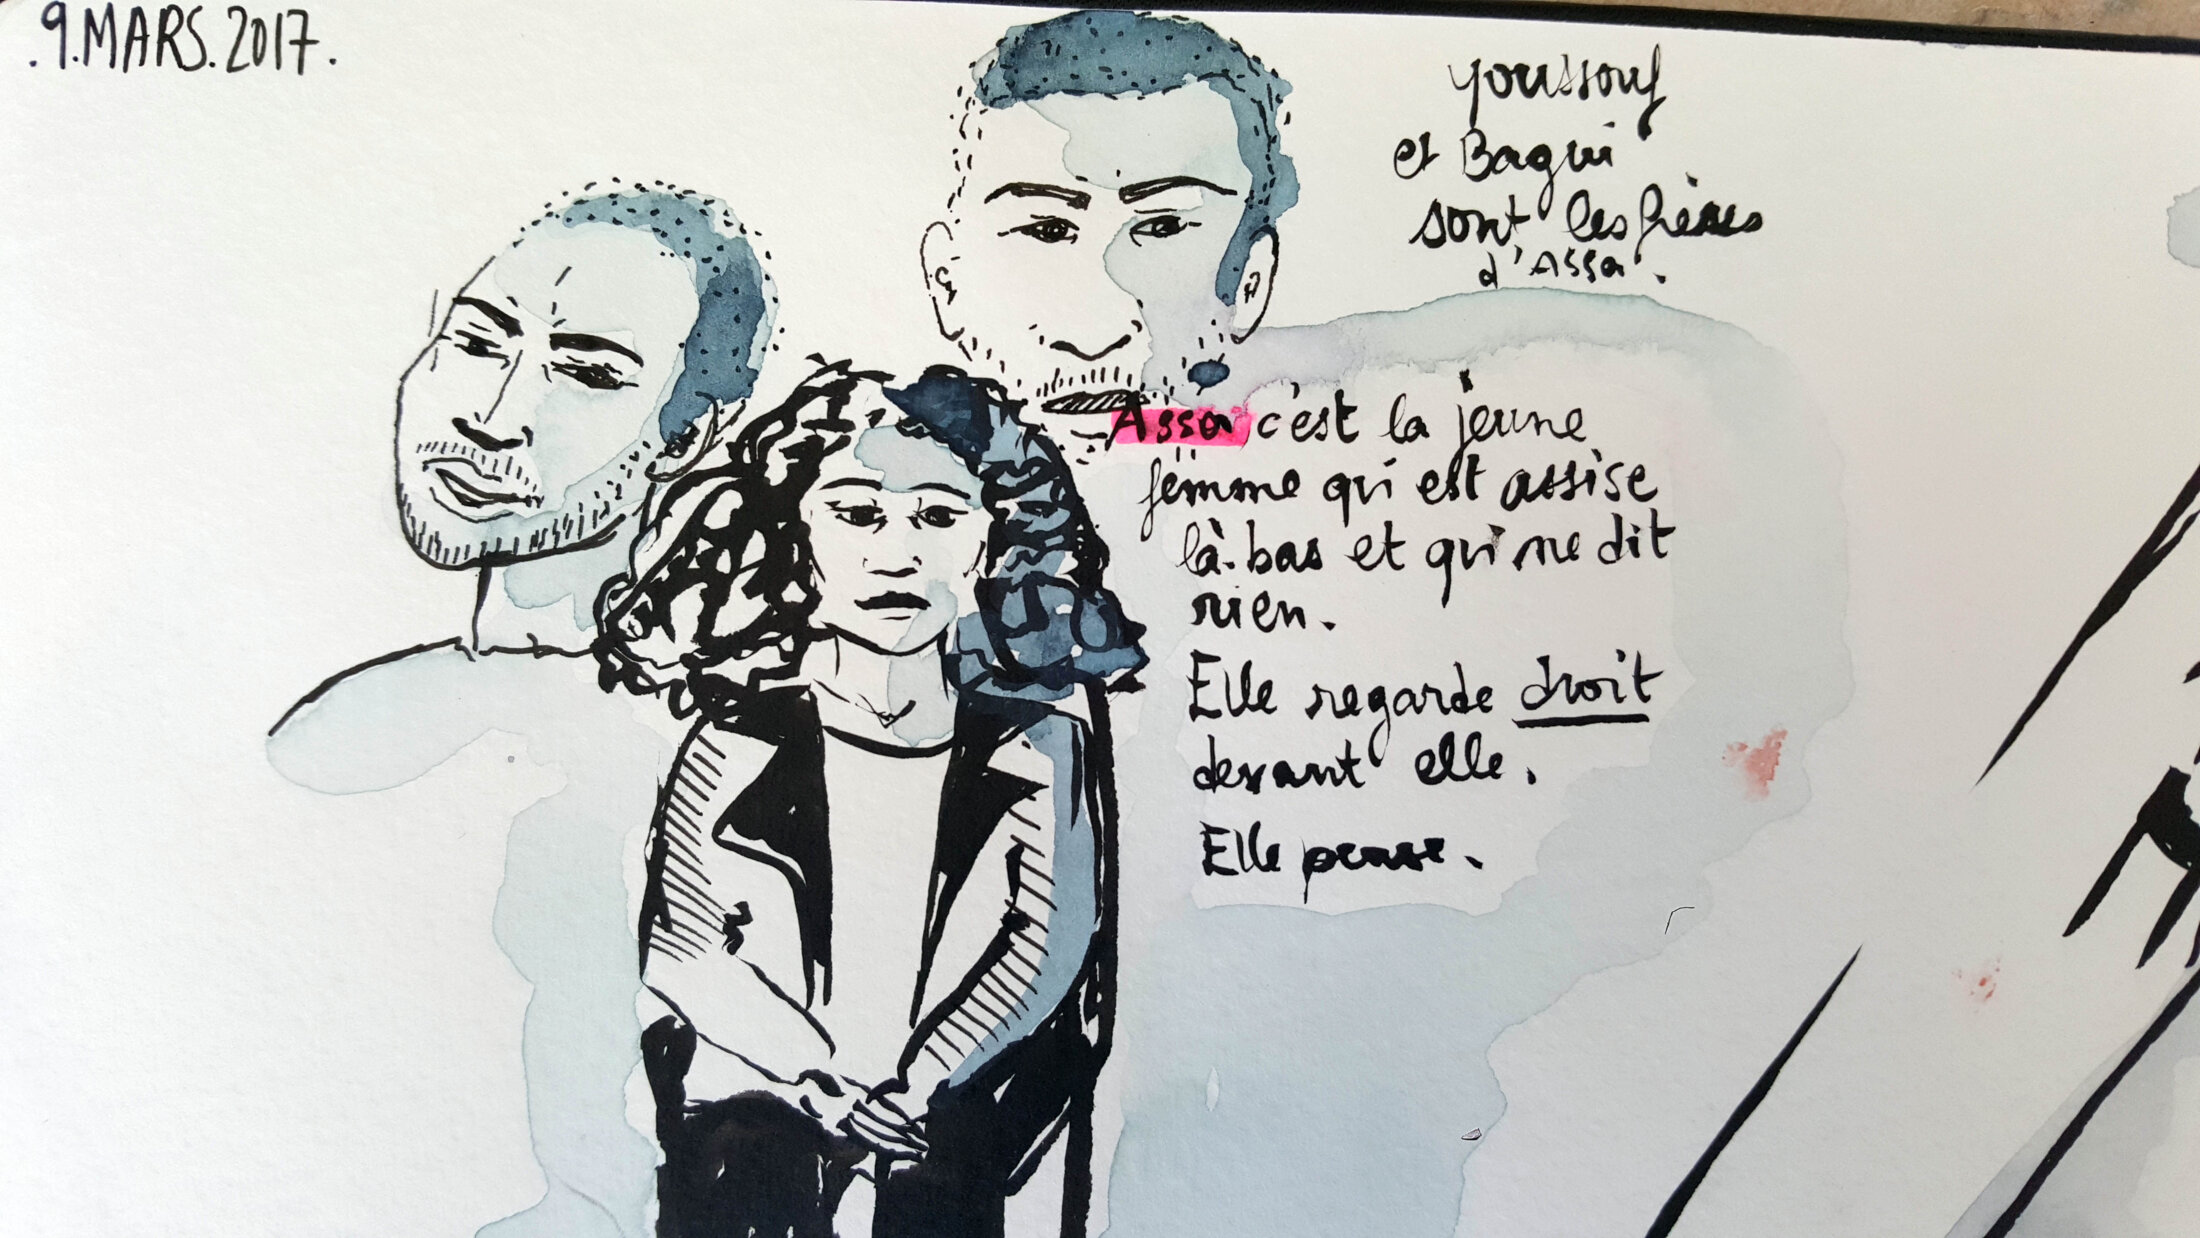 .9.MARS.2017.
Youssouf
et Bagui
sont les frères
d'Assa.
Assa c'est la jeune
femme qui est assise
là-bas et qui ne dit
rien.
Elle regarde droit
devant elle.
Elle pense.